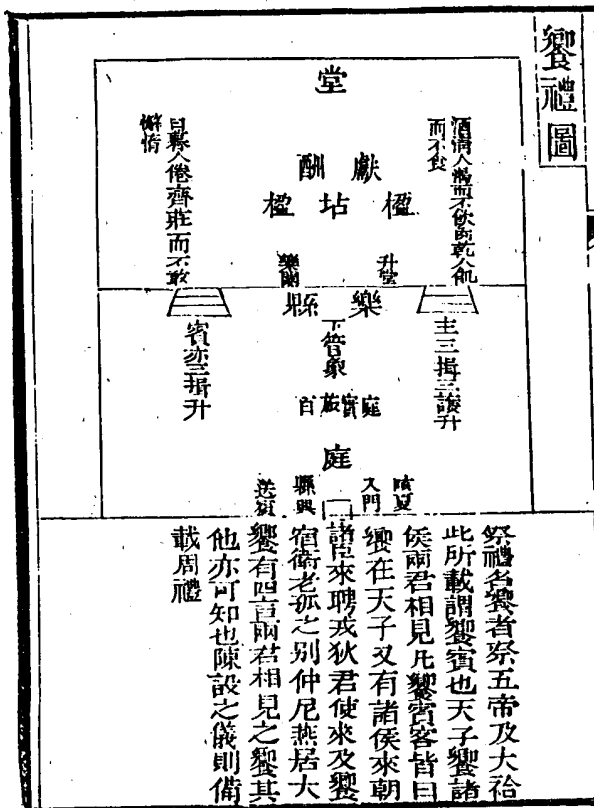 饗禮圖
堂
酒清人渴而不飲肉乾人飢
而不食
獻
酬
日暮人倦齊莊而不敢
懈惰
楹
坫
楹
升堂
樂闋
樂
縣
下管象
主三揖三讓升
賓亦三揖升
庭實
旅百
庭
入門
縣興
送賓
祭禮名饗者祭五帝及大祫
此所載謂饗賓也天子饗諸
侯兩君相見凡饗賓客皆曰
饗在天子又有諸侯來朝
諸臣來聘戎狄君使來及饗
宿衛老孤之别仲尼燕居大
饗有四言兩君相見之饗其
他亦可知也陳設之儀則備
載周禮